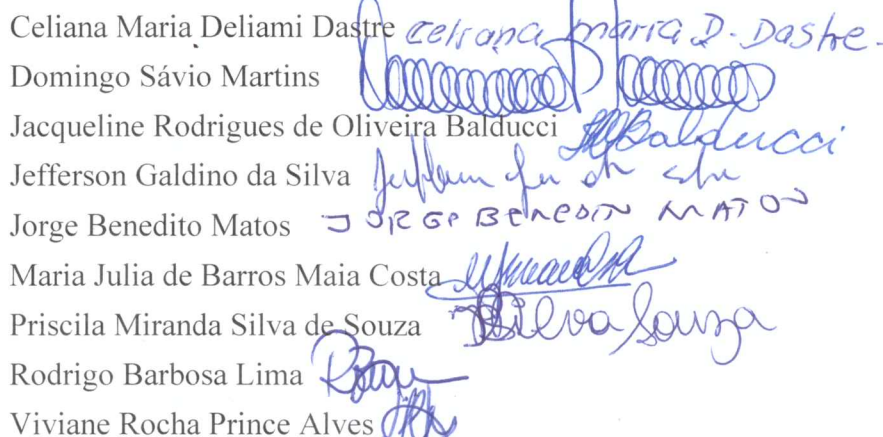 Celiana Maria Deliami Dastre Celiana Maria D. Dastre
Domingo Sávio Martins
Jacqueline Rodrigues de Oliveira Balducci Balducci
Jefferson Galdino da Silva
Jorge Benedito Matos JORGE BENEDITO MATOS
Maria Julia de Barros Maia Costa
Priscila Miranda Silva de Souza PSilva Souza
Rodrigo Barbosa Lima
Viviane Rocha Prince Alves